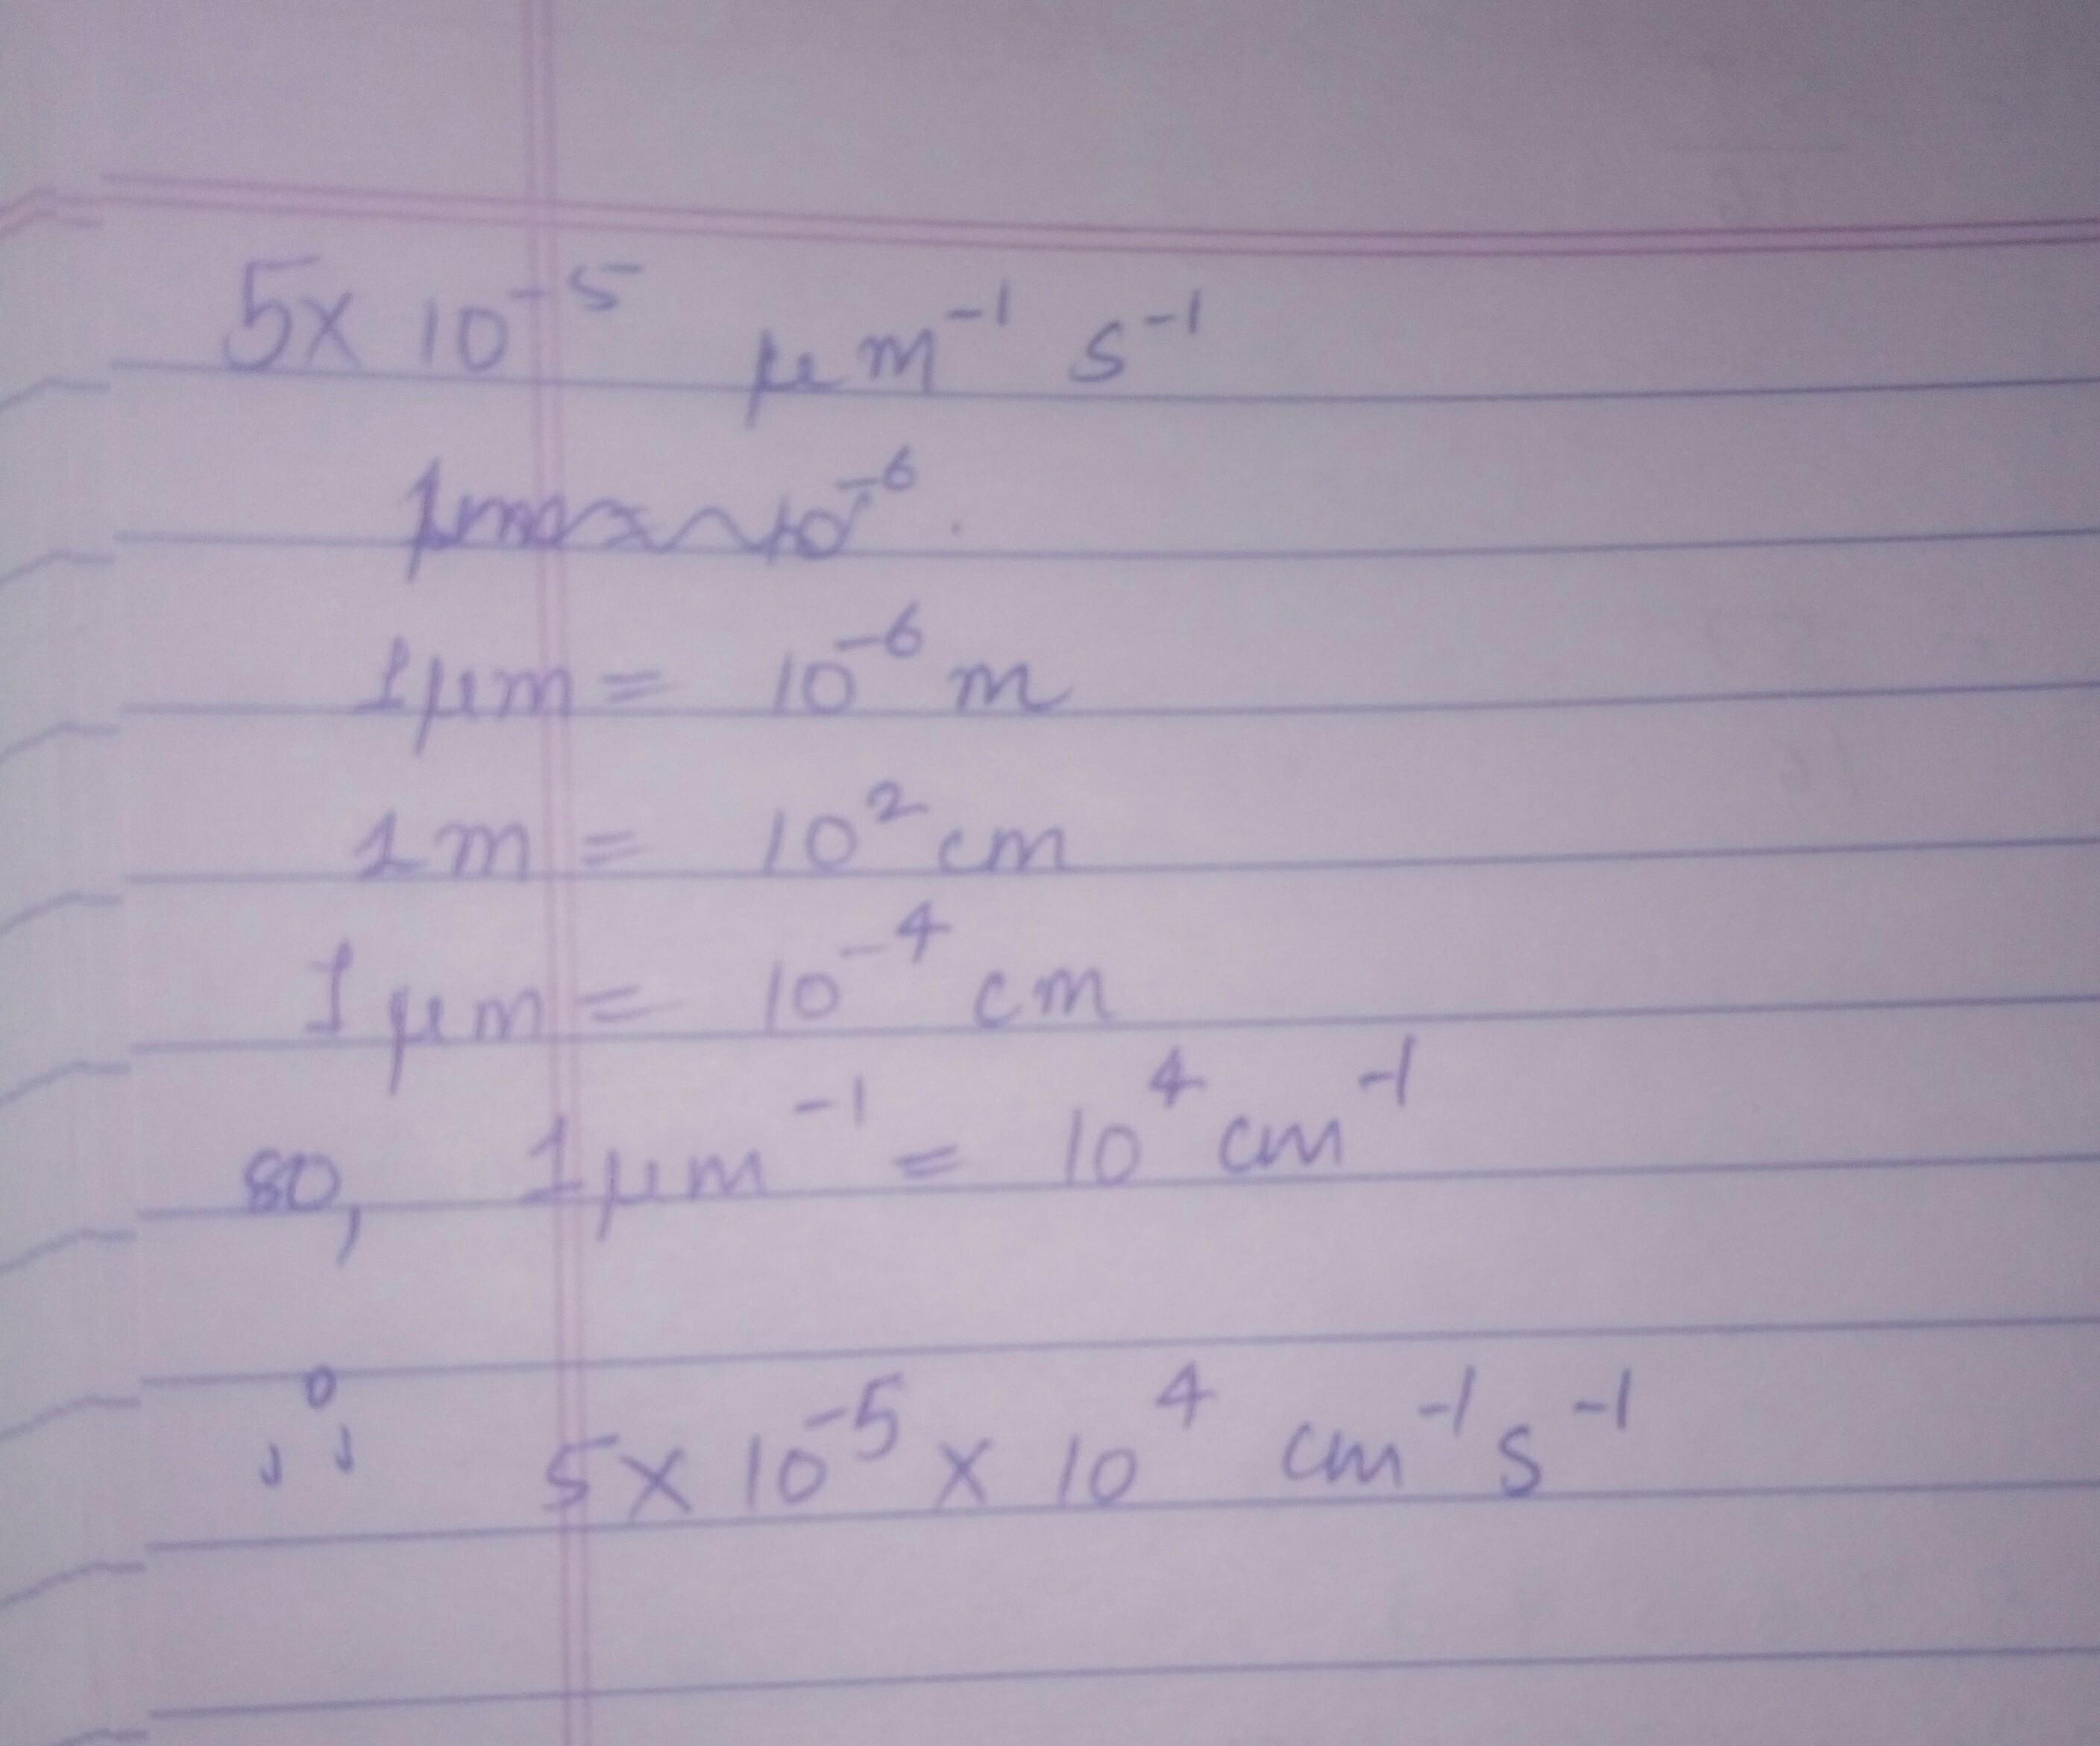 5x 10⁻⁵ μm⁻¹ s⁻¹
10⁻⁶
1μm = 10⁻⁶ m
1m = 10² cm
1μm = 10⁻⁴ cm
so, 1μm⁻¹ = 10⁴ cm⁻¹
5x 10⁻⁵ x 10⁴ cm⁻¹ s⁻¹